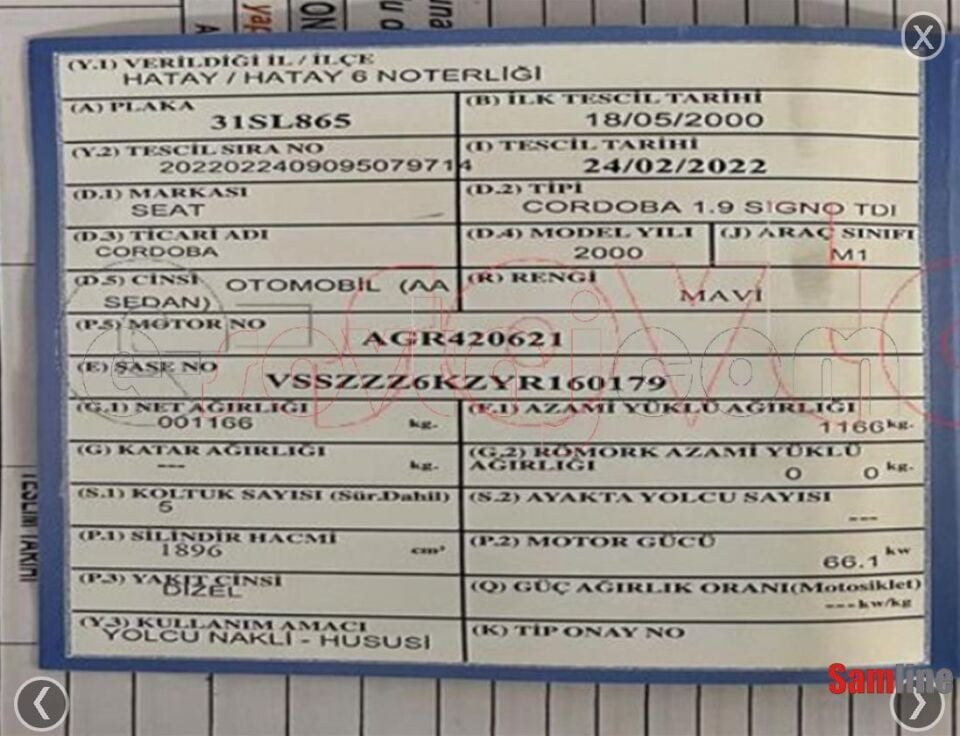 (Y.1) VERİLDİĞİ İL / İLÇE
HATAY / HATAY 6 NOTERLİĞİ
(A) PLAKA
31SL865
(B) İLK TESCİL TARİHİ
18/05/2000
(Y.2) TESCİL SIRA NO
2022022409095079714
(I) TESCİL TARİHİ
24/02/2022
(D.1) MARKASI
SEAT
(D.2) TİPİ
CORDOBA 1.9 SIGNO TDI
(D.3) TİCARİ ADI
CORDOBA
(D.4) MODEL YILI
2000
(J) ARAÇ SINIFI
M1
(D.5) CİNSİ OTOMOBİL (AA
SEDAN)
(R) RENGİ
MAVİ
(P.5) MOTOR NO
AGR420621
(E) ŞASE NO
VSSZZZ6KZYR160179
(G.1) NET AĞIRLIĞI
001166 kg.
(F.1) AZAMİ YÜKLÜ AĞIRLIĞI
1166 kg.
(G) KATAR AĞIRLIĞI
--- kg.
(G.2) RÖMORK AZAMİ YÜKLÜ
AĞIRLIĞI
0 0 kg.
(S.1) KOLTUK SAYISI (Sür.Dahil)
5
(S.2) AYAKTA YOLCU SAYISI
---
(P.1) SİLİNDİR HACMİ
1896 cm³
(P.2) MOTOR GÜCÜ
66.1 kw
(P.3) YAKIT CİNSİ
DİZEL
(Q) GÜÇ AĞIRLIK ORANI(Motosiklet)
--- kw/kg
(Y.3) KULLANIM AMACI
YOLCU NAKLİ - HUSUSİ
(K) TİP ONAY NO
Samline